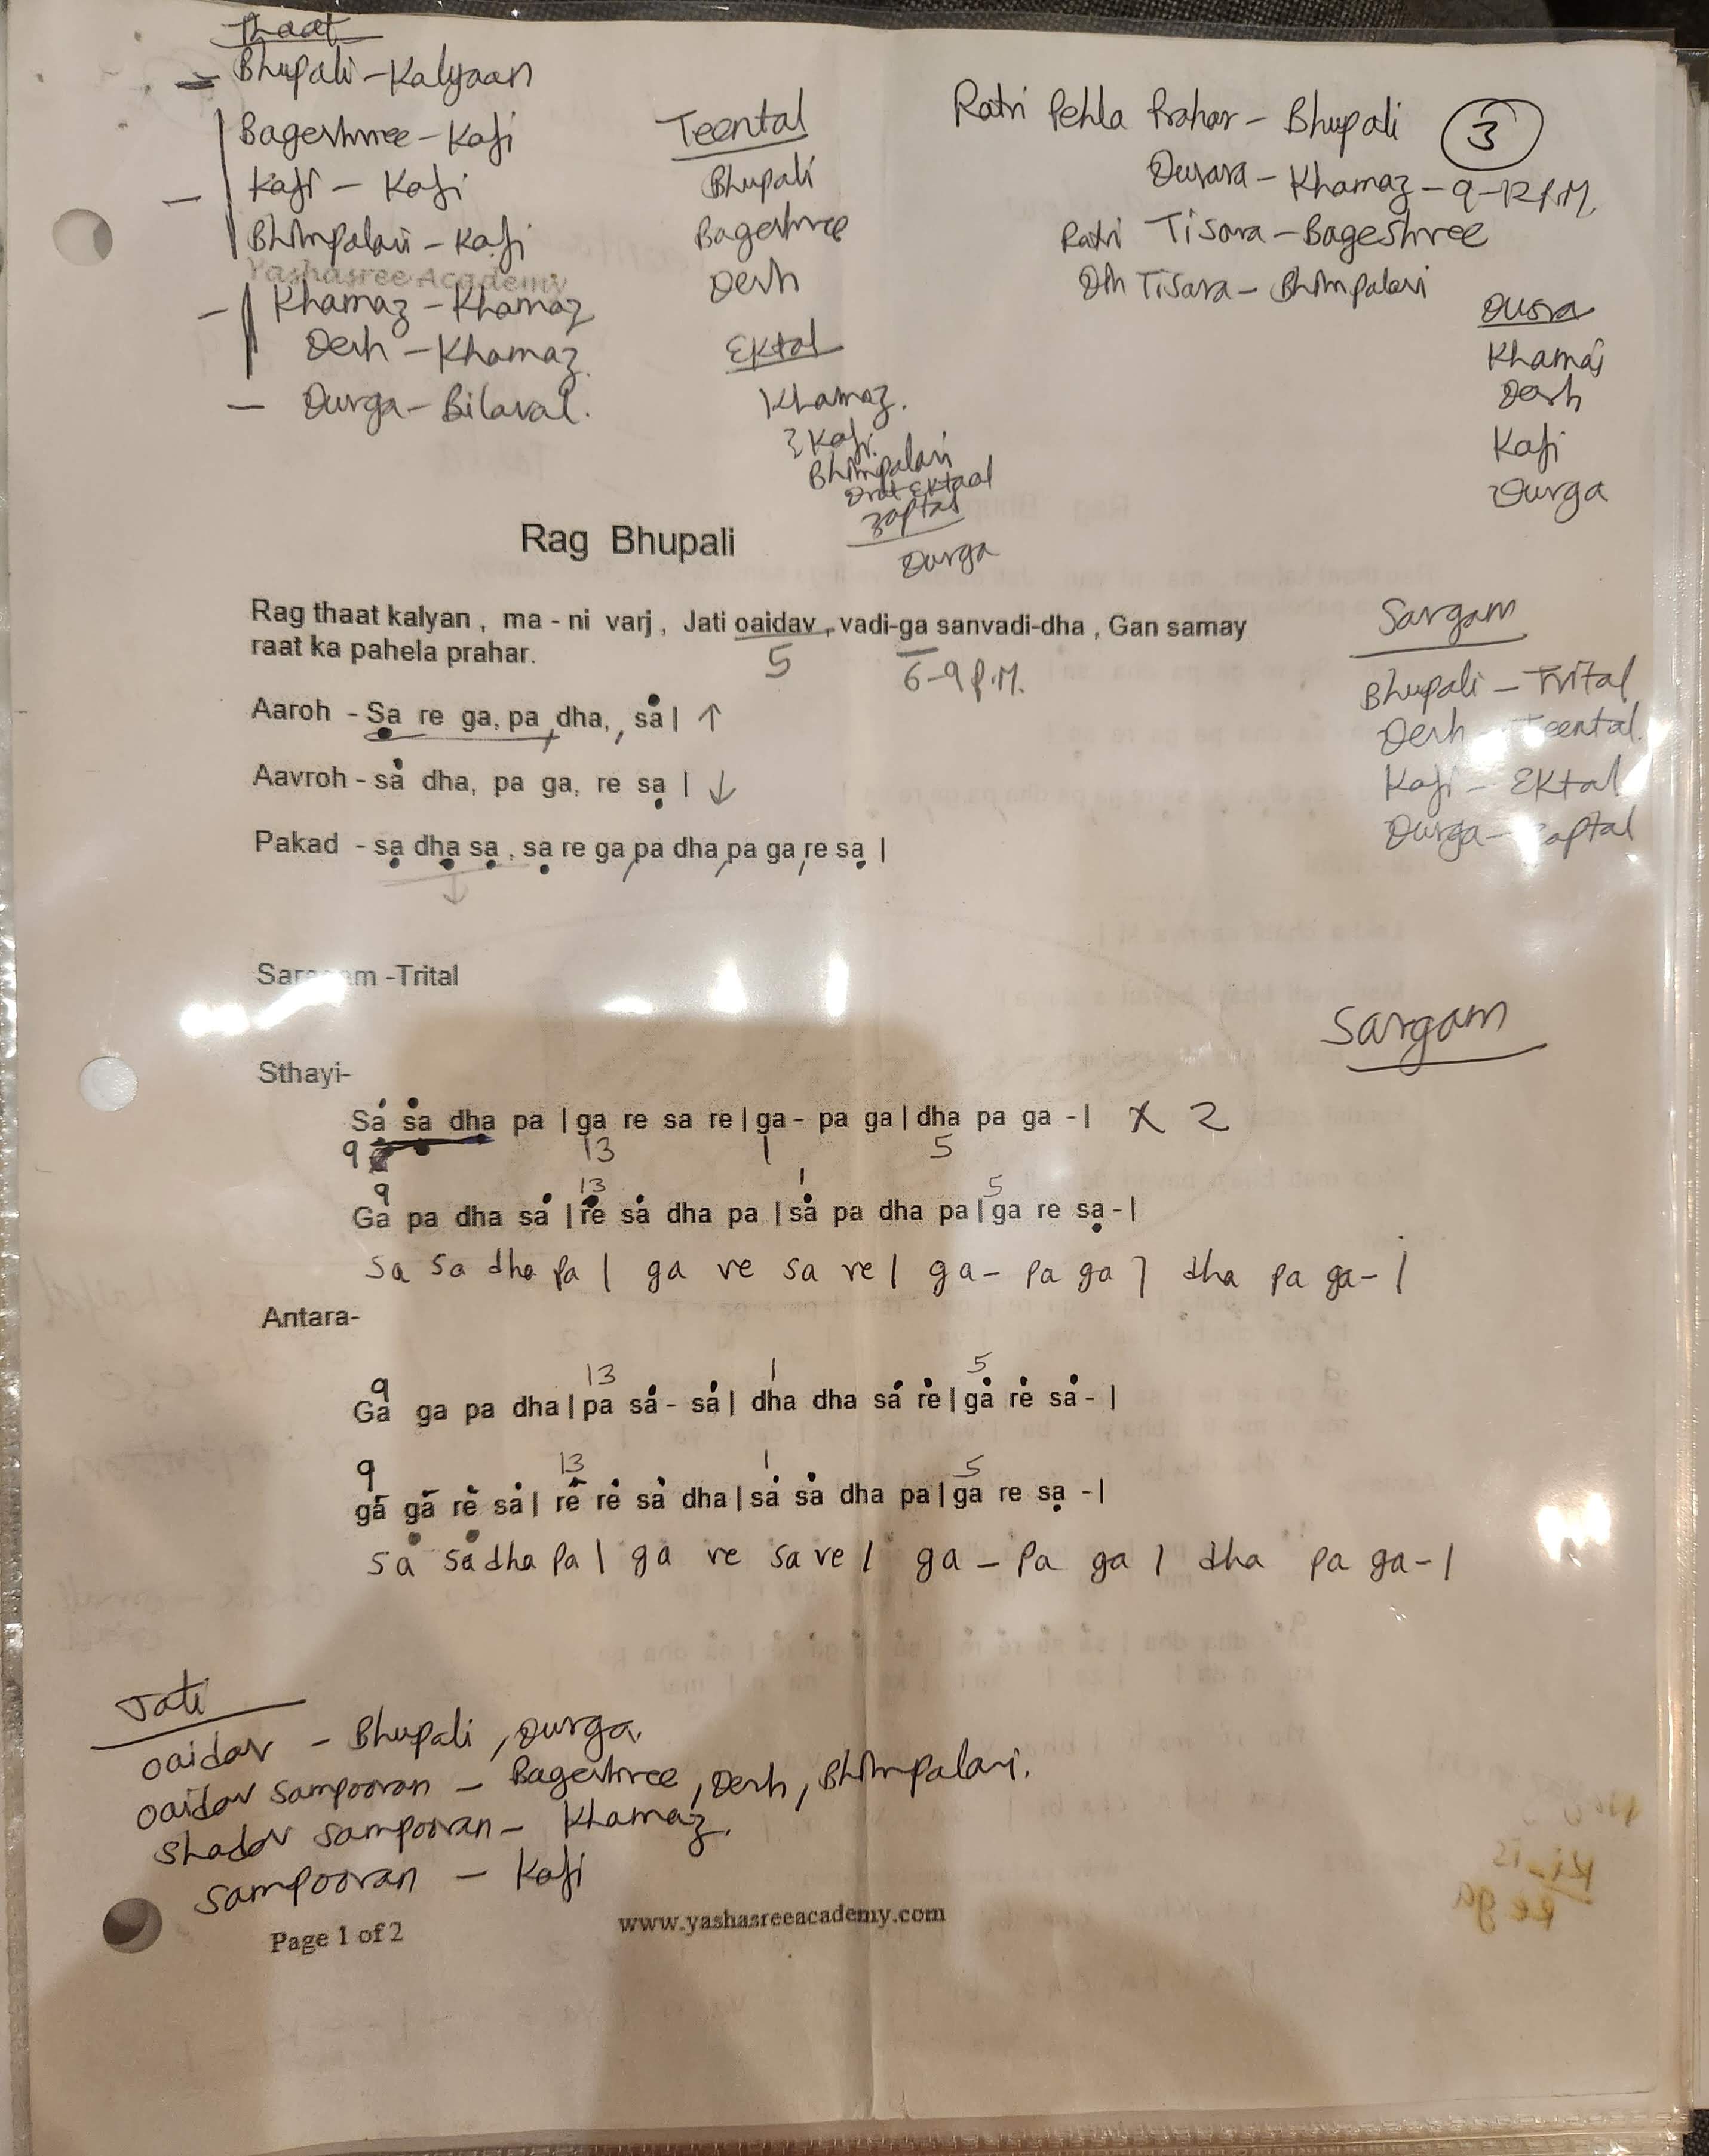 Thaat
Bhupali - Kalyaan
Bageshree - Kafi
Kafi - Kafi
Bhimpalasi - Kafi
Yashasree Academy
Khamaz - Khamaz
Desh - Khamaz
Durga - Bilaval.
Teental
Bhupali
Bageshree
Desh
Ektal
Khamaz.
Kafi.
Bhimpalasi
Drut Ektaal
Zaptal
Durga
Ratri Pehla Prahar - Bhupali
3
Dusara - Khamaz - 9-12 P.M.
Ratri Tisara - Bageshree
Din Tisara - Bhimpalasi
Dusra
Khamaj
Desh
Kafi
Durga
Rag Bhupali
Rag thaat kalyan , ma - ni varj , Jati oaidav , vadi-ga sanvadi-dha , Gan samay
raat ka pahela prahar.
5
6-9 P.M.
Aaroh - Sạ re ga, pa, dha, , sȧ | ↑
Aavroh - sȧ dha, pa ga, re sạ | ↓
Pakad - sạ dhạ sạ , sạ re ga, pa dha, pa ga, re sạ |
↓
Sargam
Bhupali - Trital
Desh - Teental.
Kafi - Ektal
Durga - Zaptal
-Trital
Sargam
Sthayi-
Sȧ sȧ dha pa | ga re sa re | ga - pa ga | dha pa ga - | x 2
9 13 1 5
9 13 1 5
Ga pa dha sȧ | rė sȧ dha pa | sȧ pa dha pa | ga re sạ - |
Sa sa dha pa | ga re sa re | ga - pa ga | dha pa ga - |
Antara-
9 13 1 5
Ga ga pa dha | pa sȧ - sȧ | dha dha sȧ rė | gȧ rė sȧ - |
9 13 1 5
gȧ gȧ rė sȧ | rė rė sȧ dha | sȧ sȧ dha pa | ga re sạ - |
sȧ sȧ dha pa | ga re sa re | ga - pa ga | dha pa ga - |
Jati
oaidav - Bhupali, Durga.
oaidav sampooran - Bageshree, Desh, Bhimpalasi.
Shadav sampooran - Khamaz.
sampooran - Kafi
Page 1 of 2
www.yashasreeacademy.com